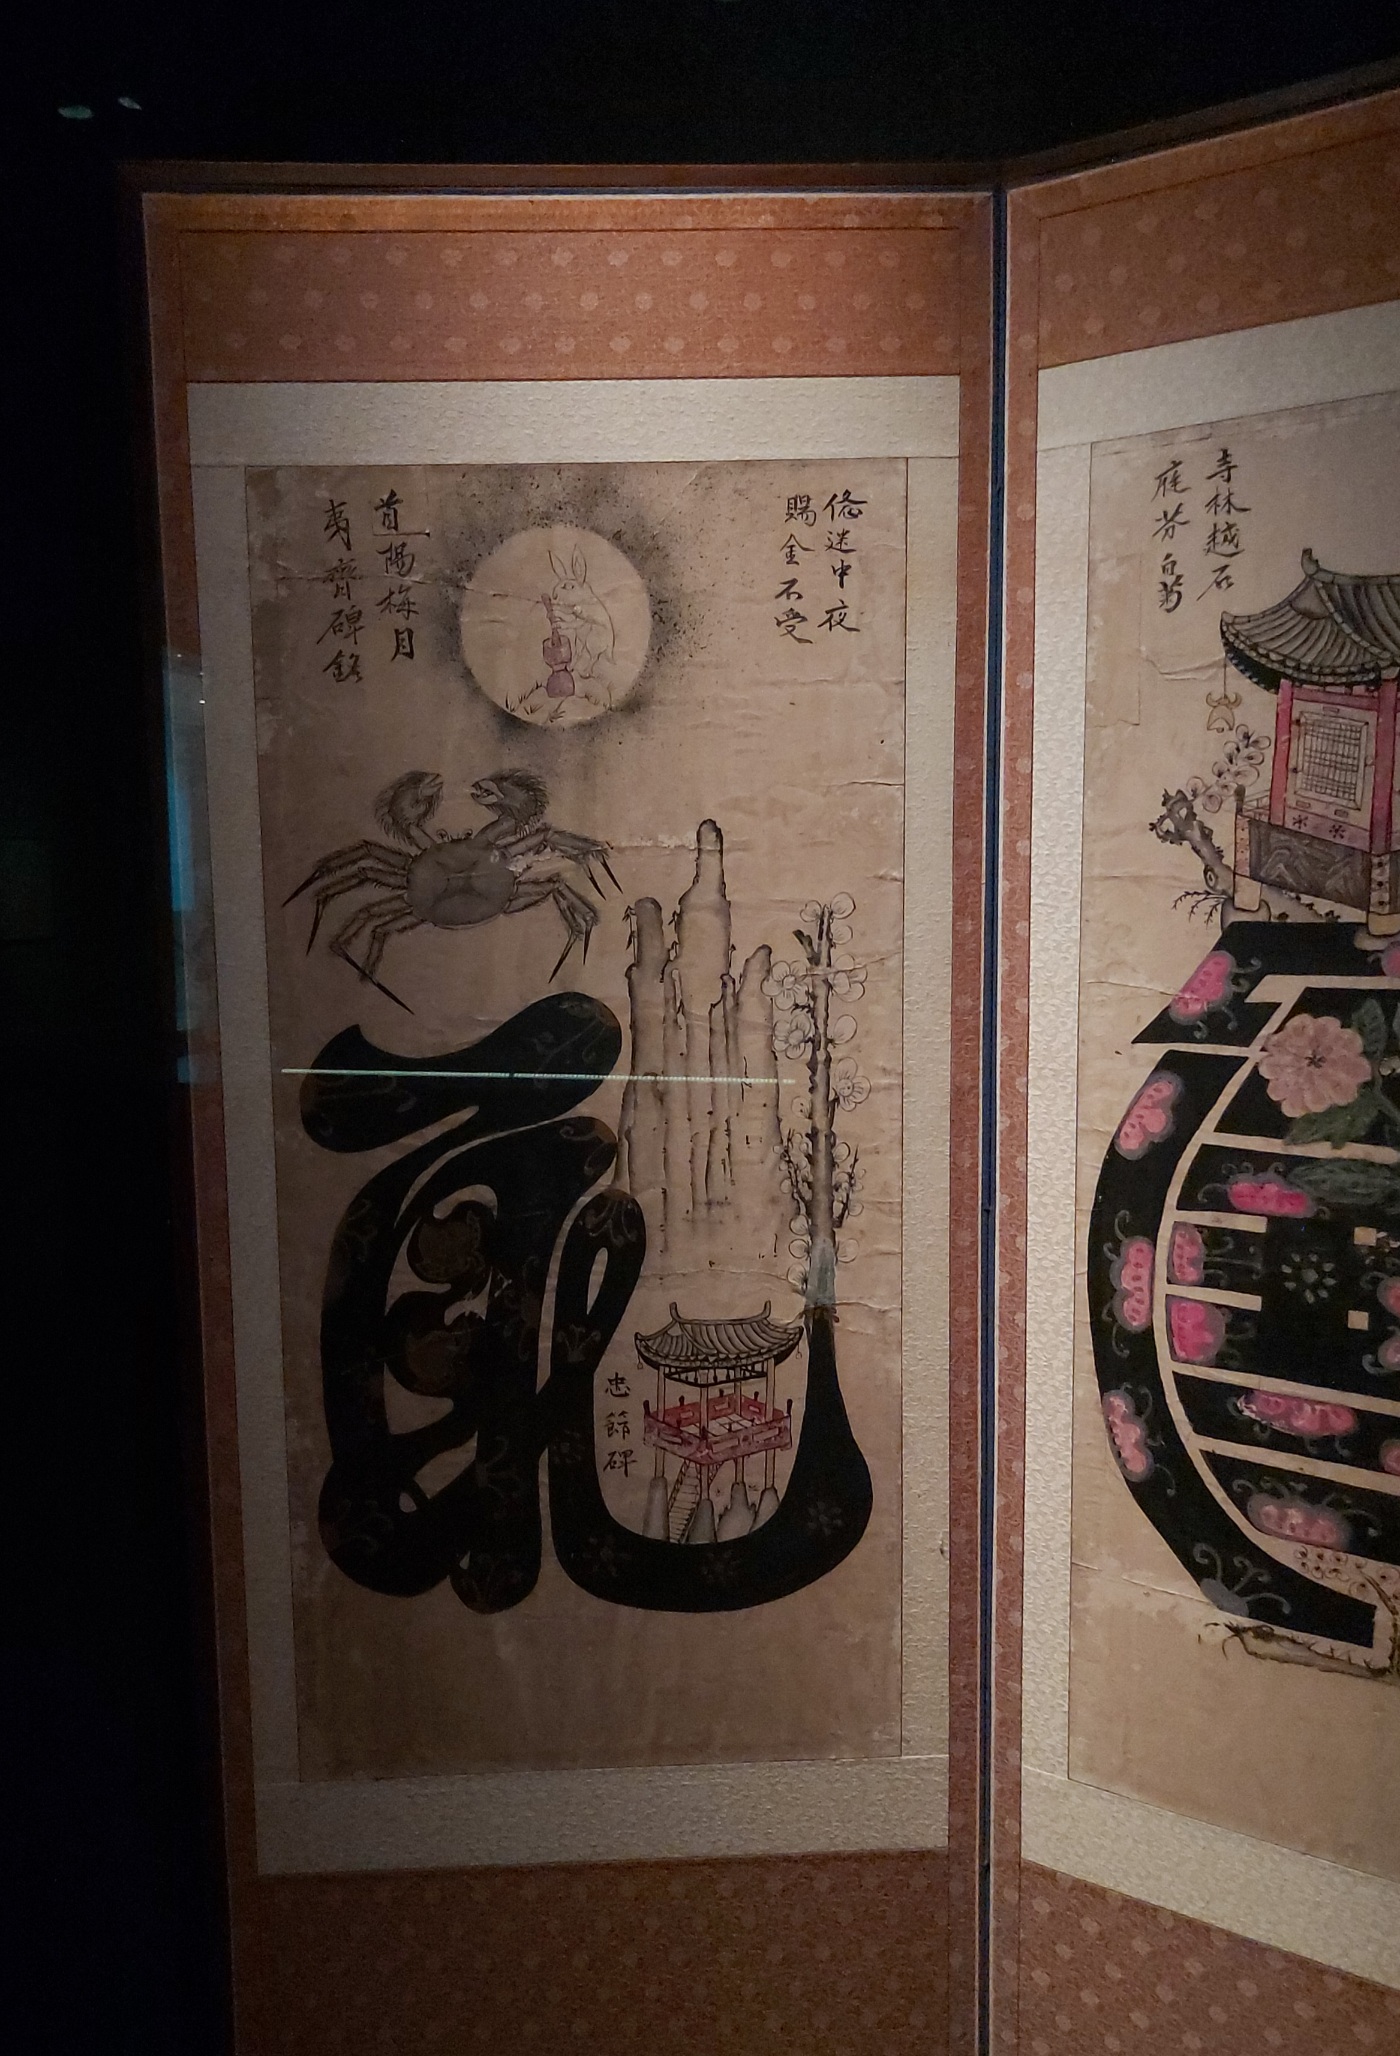 寺林越石
庭芬白菊
迷中夜
賜金不受
首陽梅月
夷齊碑銘
恥
忠節碑